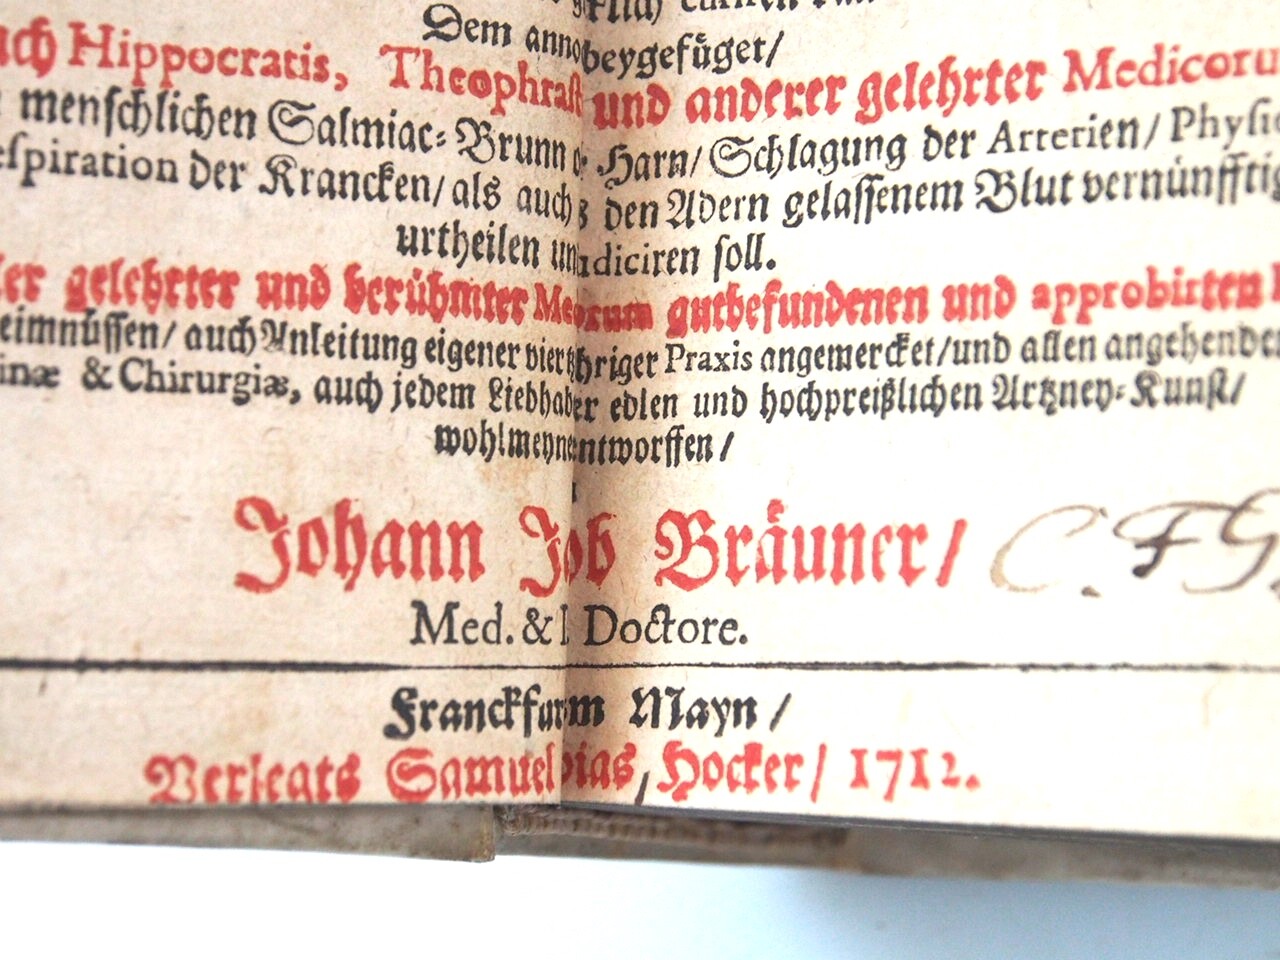 Dem anno beygefüget/
ach Hippocratis, Theophrast und anderer gelehrter Medicoru
menschlichen Salmiac-Brunn Harn/ Schlagung der Arterien/ Physi
espiration der Krancken/ als auch den Adern gelassenem Blut vernünfftig
urtheilen un diciren soll.
er gelehrter und berühmter Me orum gutbefundenen und approbirten
eimnüssen/ auch Anleitung eigener viertz hriger Praxis angemercket/ und allen angehenden
inæ & Chirurgiæ, auch jedem Liebhaber edlen und hochpreißlichen Artzney-Kunst/
wohlmeyne entworffen/
Johann Job Bräuner/ C. F. G.
Med. & Doctore.
Franckfur m Mayn/
Verlegts Samuel ias Hocker/ 1712.